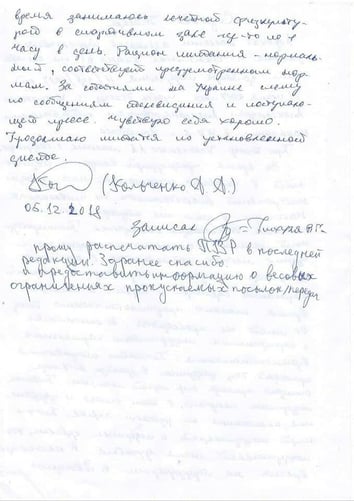 время занимаюсь лечебной физкульту-
рой в спортивном зале где-то по 1
часу в день. Рацион питания - нормаль-
ный, соответствует предусмотренным нор-
мам. За событиями на Украине слежу
по сообщениям телевидения и поступаю-
щей прессе. Чувствую себя хорошо.
Продолжаю питаться по установленной
диете.
(Кольченко А А)
05.12.2018
Записал
прошу распечатать ПВР в последней
редакции. Заранее спасибо
и предоставить информацию о весовых
ограничениях пропускаемых посылок/передач